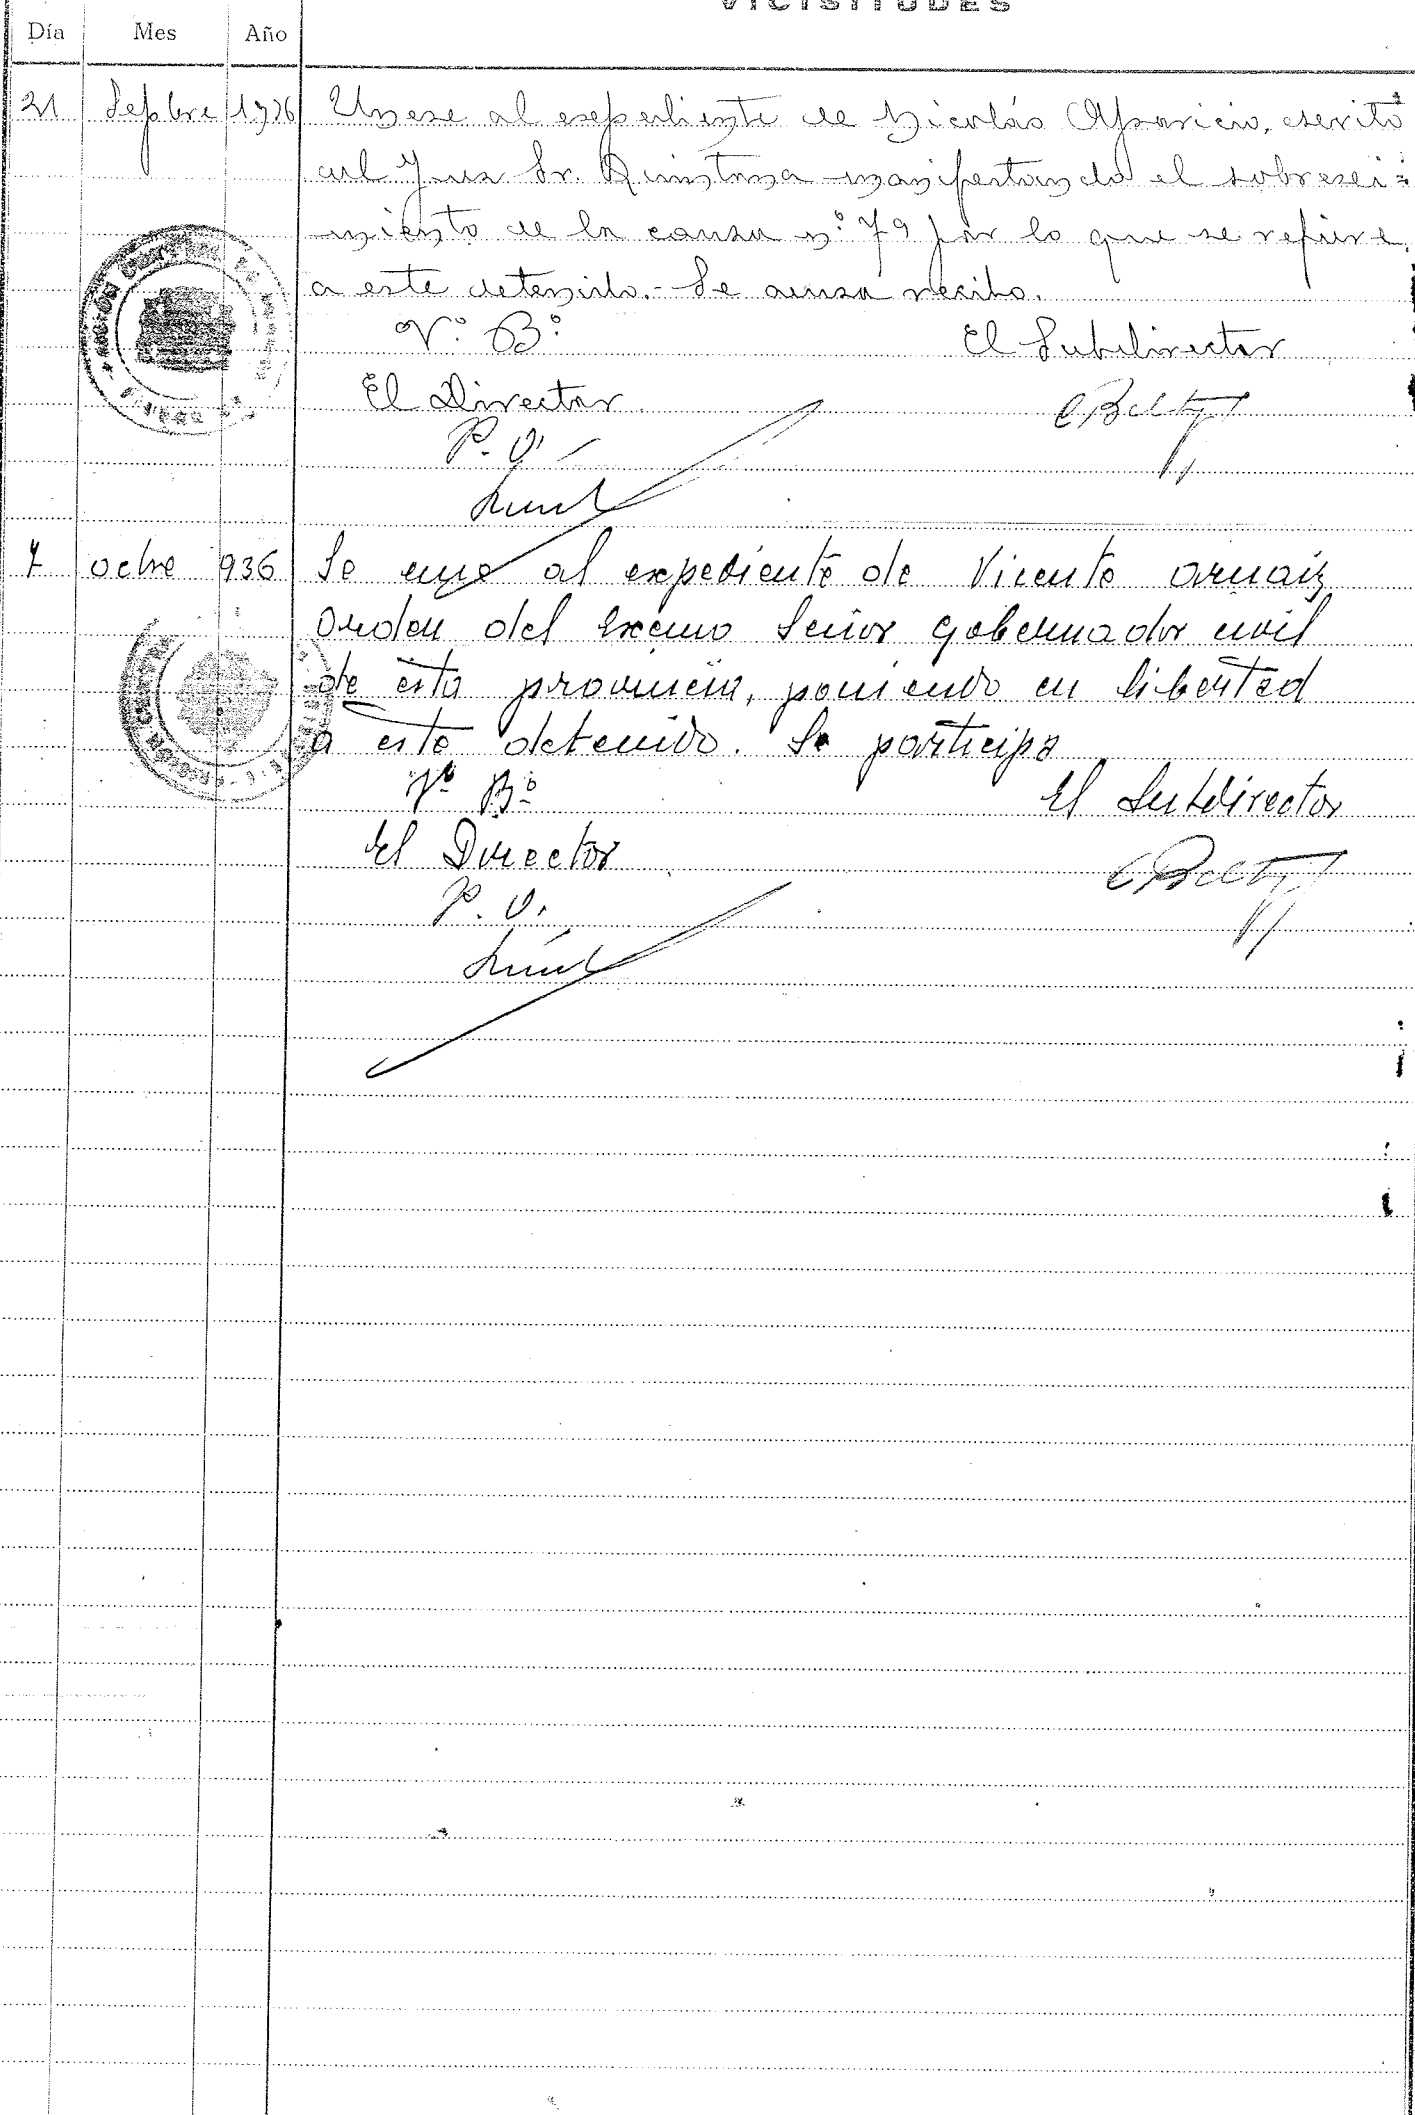 VICISITUDES
Día Mes Año
21 Sepbre 1936 Unese al expediente de Nicolás Aparicio, escrito
del Juez Sr. Quintana manifestando el sobresei=
miento de la causa n.º 79 por lo que se refiere
a este detenido.- Se acusa recibo.
Vº Bº El Subdirector
El Director
P. O.
7 octbre 936 Se une al expediente de Vicente Arnaiz
Orden del Excmo Señor Gobernador civil
de esta provincia, poniendo en libertad
a este detenido. Se participa
Vº Bº El Subdirector
El Director
P. O.
PRISION CENTRAL